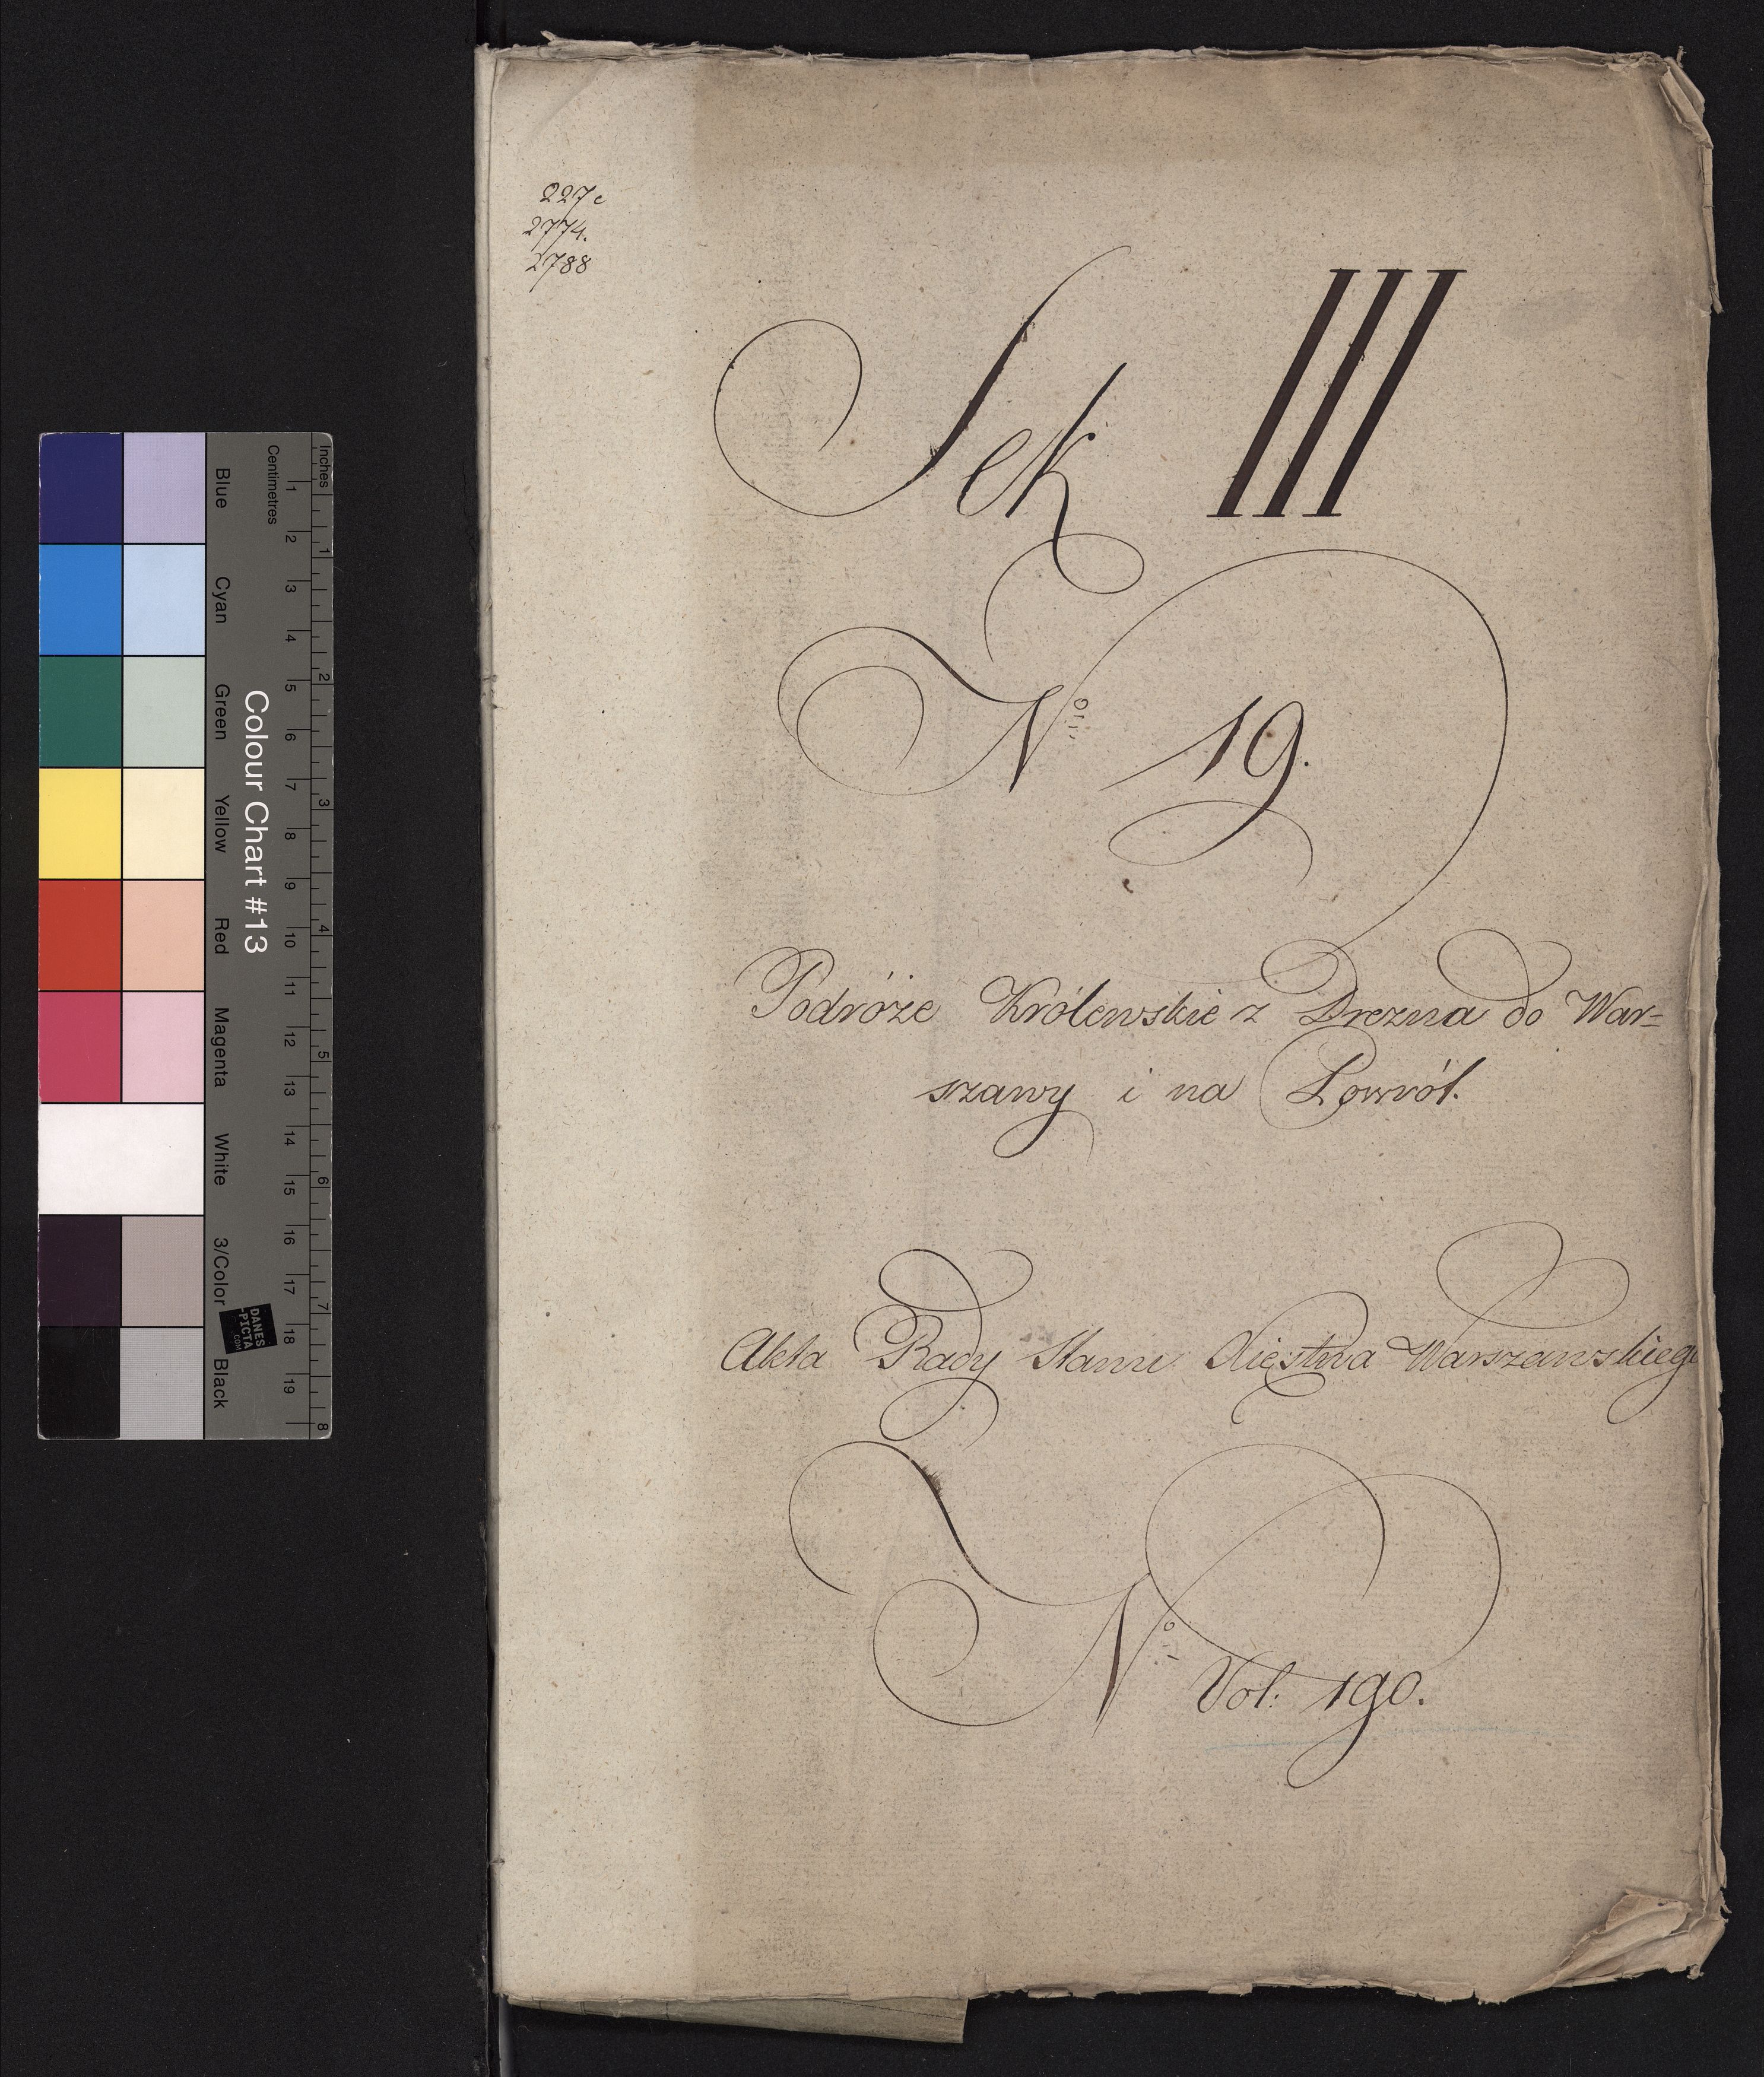 227c
2774.
2788
Sek III
No 19.
Podróże Królewskie z Drezna do War=
szawy i na Powrót.
Akta Rady Stanu Xięstwa Warszawskiego
No Vol: 190.
Inches
Centimetres
1 2 3 4 5 6 7 8 9 10 11 12 13 14 15 16 17 18 19
1 2 3 4 5 6 7 8
Colour Chart #13
Blue
Cyan
Green
Yellow
Red
Magenta
White
3/Color
Black
DANES
-PICTA
.COM